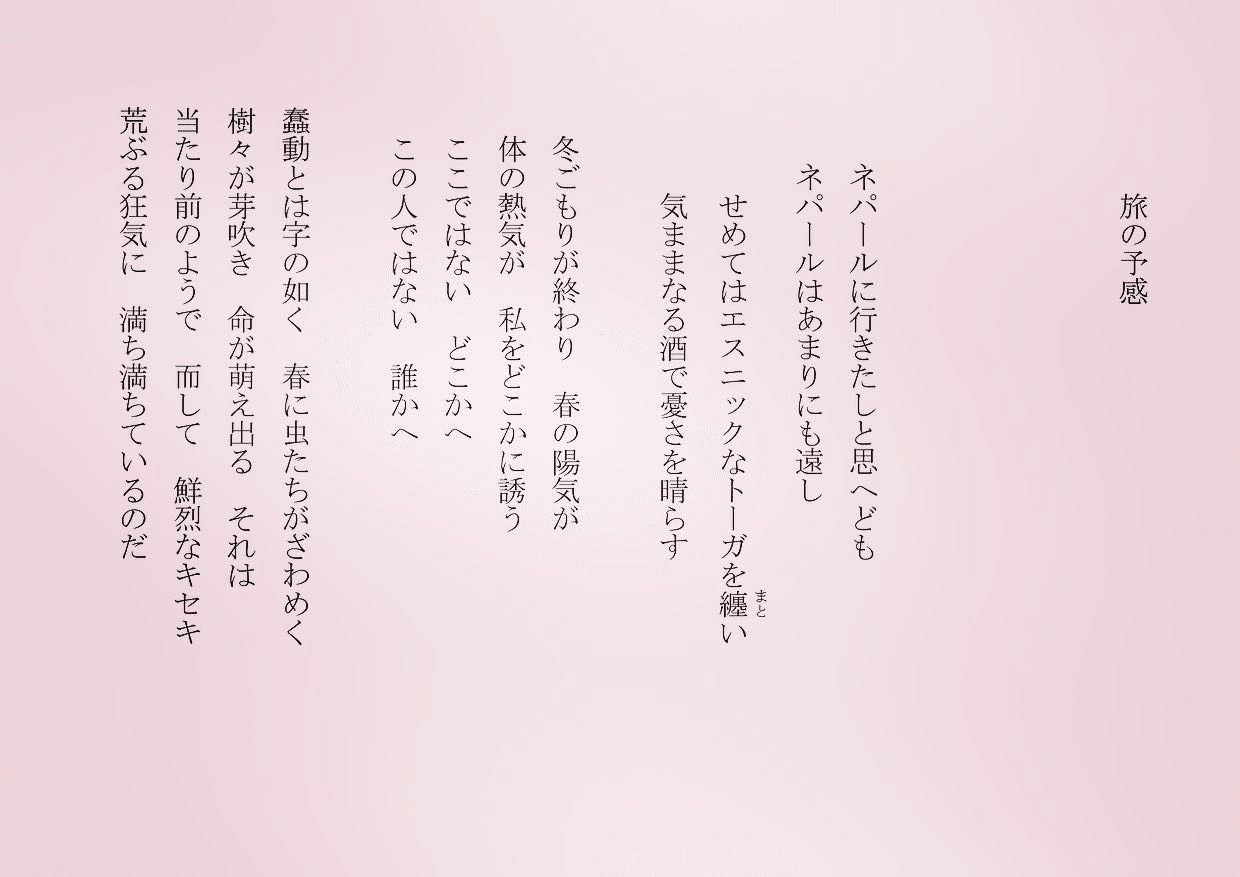 旅の予感
ネパールに行きたしと思へども
ネパールはあまりにも遠し
せめてはエスニックなトーガを纏い
まと
気ままなる酒で憂さを晴らす
冬ごもりが終わり　春の陽気が
体の熱気が　私をどこかに誘う
ここではない　どこかへ
この人ではない　誰かへ
蠢動とは字の如く　春に虫たちがざわめく
樹々が芽吹き　命が萌え出る　それは
当たり前のようで　而して　鮮烈なキセキ
荒ぶる狂気に　満ち満ちているのだ